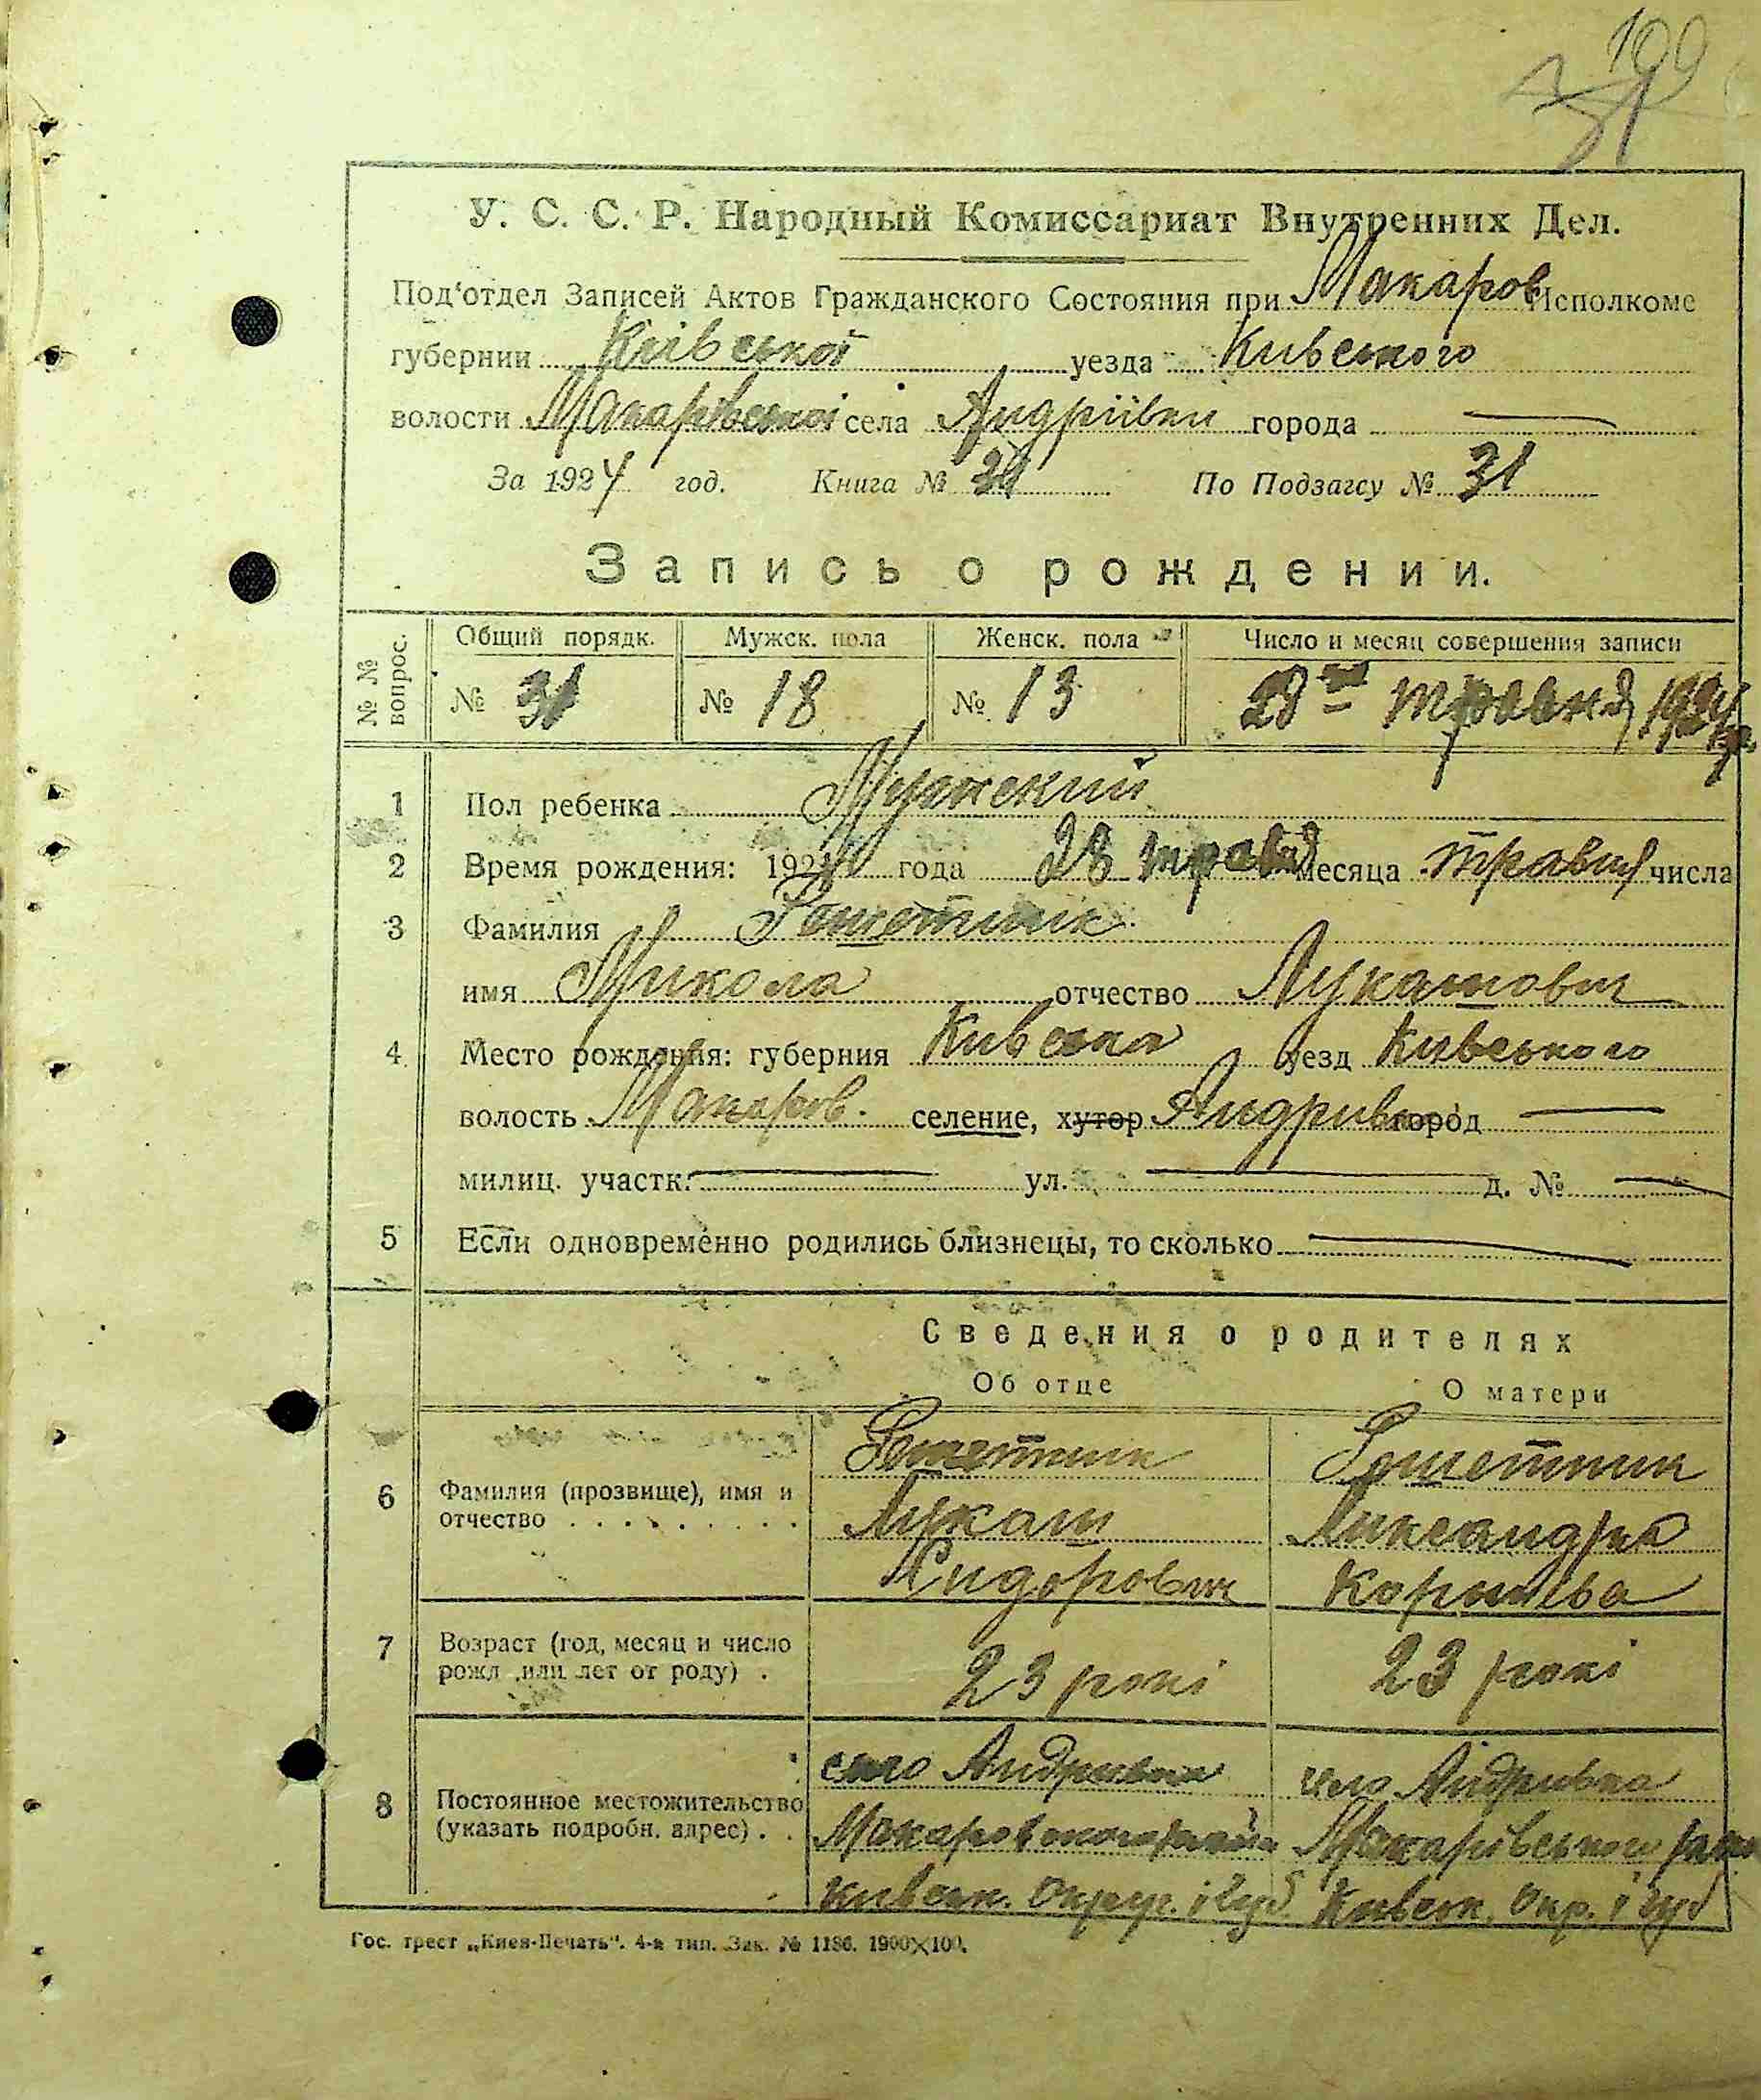 У. С. С. Р. Народный Комиссариат Внутренних Дел.
Под'отдел Записей Актов Гражданского Состояния при Макаров Исполкоме
губернии Київської уезда Київського
волости Макарівської села Андріївки города —
За 1924 год. Книга № 31 По Подзагсу № 31
Запись о рождении.
№ № вопрос. Общий порядк. Мужск. пола Женск. пола Число и месяц совершения записи
№ 31 № 18 № 13 28го травня 1924
1 Пол ребенка Мужский
2 Время рождения: 1924 года 28 травня месяца травня числа
3 Фамилия Решетник
имя Микола отчество Лукашович
4 Место рождения: губерния Київська уезд Київського
волость Макаров. селение, хутор Андривка город —
милиц. участк. — ул. — д. № —
5 Если одновременно родились близнецы, то сколько —
Сведения о родителях
Об отце О матери
6 Фамилия (прозвище), имя и отчество
Решетник Решетник
Лукаш Александра
Сидорович Корніева
7 Возраст (год, месяц и число рожд. или лет от роду) . 23 рокі 23 рокі
8 Постоянное местожительство (указать подробн. адрес) . .
село Андривка село Андривка
Макаровского району Макарівського району
Київськ. Округ. і Губ. Київськ. Окр. і губ
Гос. трест „Киев-Печать“. 4-я тип. Зак. № 1186. 1900×100.